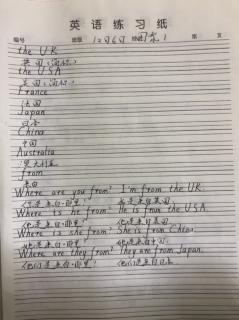 英语练习纸
编号 班级 12月6日 姓名 1 第 页
the UK
英国(简称)
the USA
美国(简称)
France
法国
Japan
日本
China
中国
Australia
澳大利亚
from
来自
Where are you from? I'm from the UK.
你是来自哪里? 我是来自英国。
Where is he from? He is from the USA
他是来自哪里? 他是来自美国。
Where is she from? She is from China.
她是来自哪里? 她是来自中国。
Where are they from? They are from Japan.
他们是来自哪里? 他们是来自日本